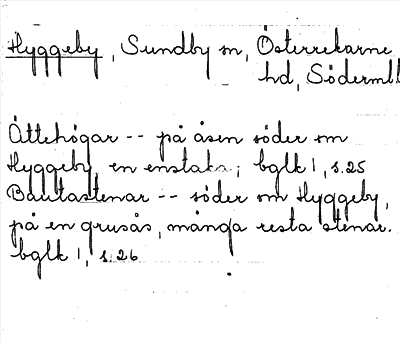 Hyggeby, Sundby sn, Österrekarne
hd, Söderml
Ättehögar -- på åsen söder om
Hyggeby, en enstaka; bglk 1, s.25
Bautastenar -- söder om Hyggeby,
på en grusås, många resta stenar.
bglk 1, s.26